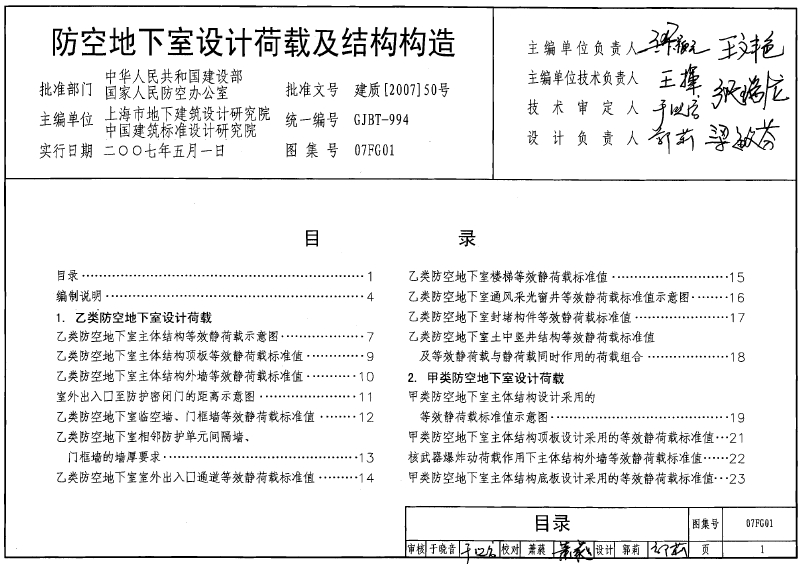 防空地下室设计荷载及结构构造
批准部门 中华人民共和国建设部
国家人民防空办公室
批准文号 建质[2007]50号
主编单位 上海市地下建筑设计研究院
中国建筑标准设计研究院
统一编号 GJBT-994
实行日期 二〇〇七年五月一日
图集号 07FG01
主编单位负责人 王文艳
主编单位技术负责人 王挥
技术审定人 于晓音 张瑞龙
设计负责人 郭莉 梁敏芬
目 录
目录……1
编制说明……4
1. 乙类防空地下室设计荷载
乙类防空地下室主体结构等效静荷载示意图……7
乙类防空地下室主体结构顶板等效静荷载标准值……9
乙类防空地下室主体结构外墙等效静荷载标准值……10
室外出入口至防护密闭门的距离示意图……11
乙类防空地下室临空墙、门框墙等效静荷载标准值……12
乙类防空地下室相邻防护单元间隔墙、
门框墙的墙厚要求……13
乙类防空地下室室外出入口通道等效静荷载标准值……14
乙类防空地下室楼梯等效静荷载标准值……15
乙类防空地下室通风采光窗井等效静荷载标准值示意图……16
乙类防空地下室封堵构件等效静荷载标准值……17
乙类防空地下室土中竖井结构等效静荷载标准值
及等效静荷载与静荷载同时作用的荷载组合……18
2. 甲类防空地下室设计荷载
甲类防空地下室主体结构设计采用的
等效静荷载标准值示意图……19
甲类防空地下室主体结构顶板设计采用的等效静荷载标准值…21
核武器爆炸动荷载作用下主体结构外墙等效静荷载标准值……22
甲类防空地下室主体结构底板设计采用的等效静荷载标准值…23
目录 图集号 07FG01
审核 于晓音 于晓音 校对 萧蕤 萧蕤 设计 郭莉 郭莉 页 1